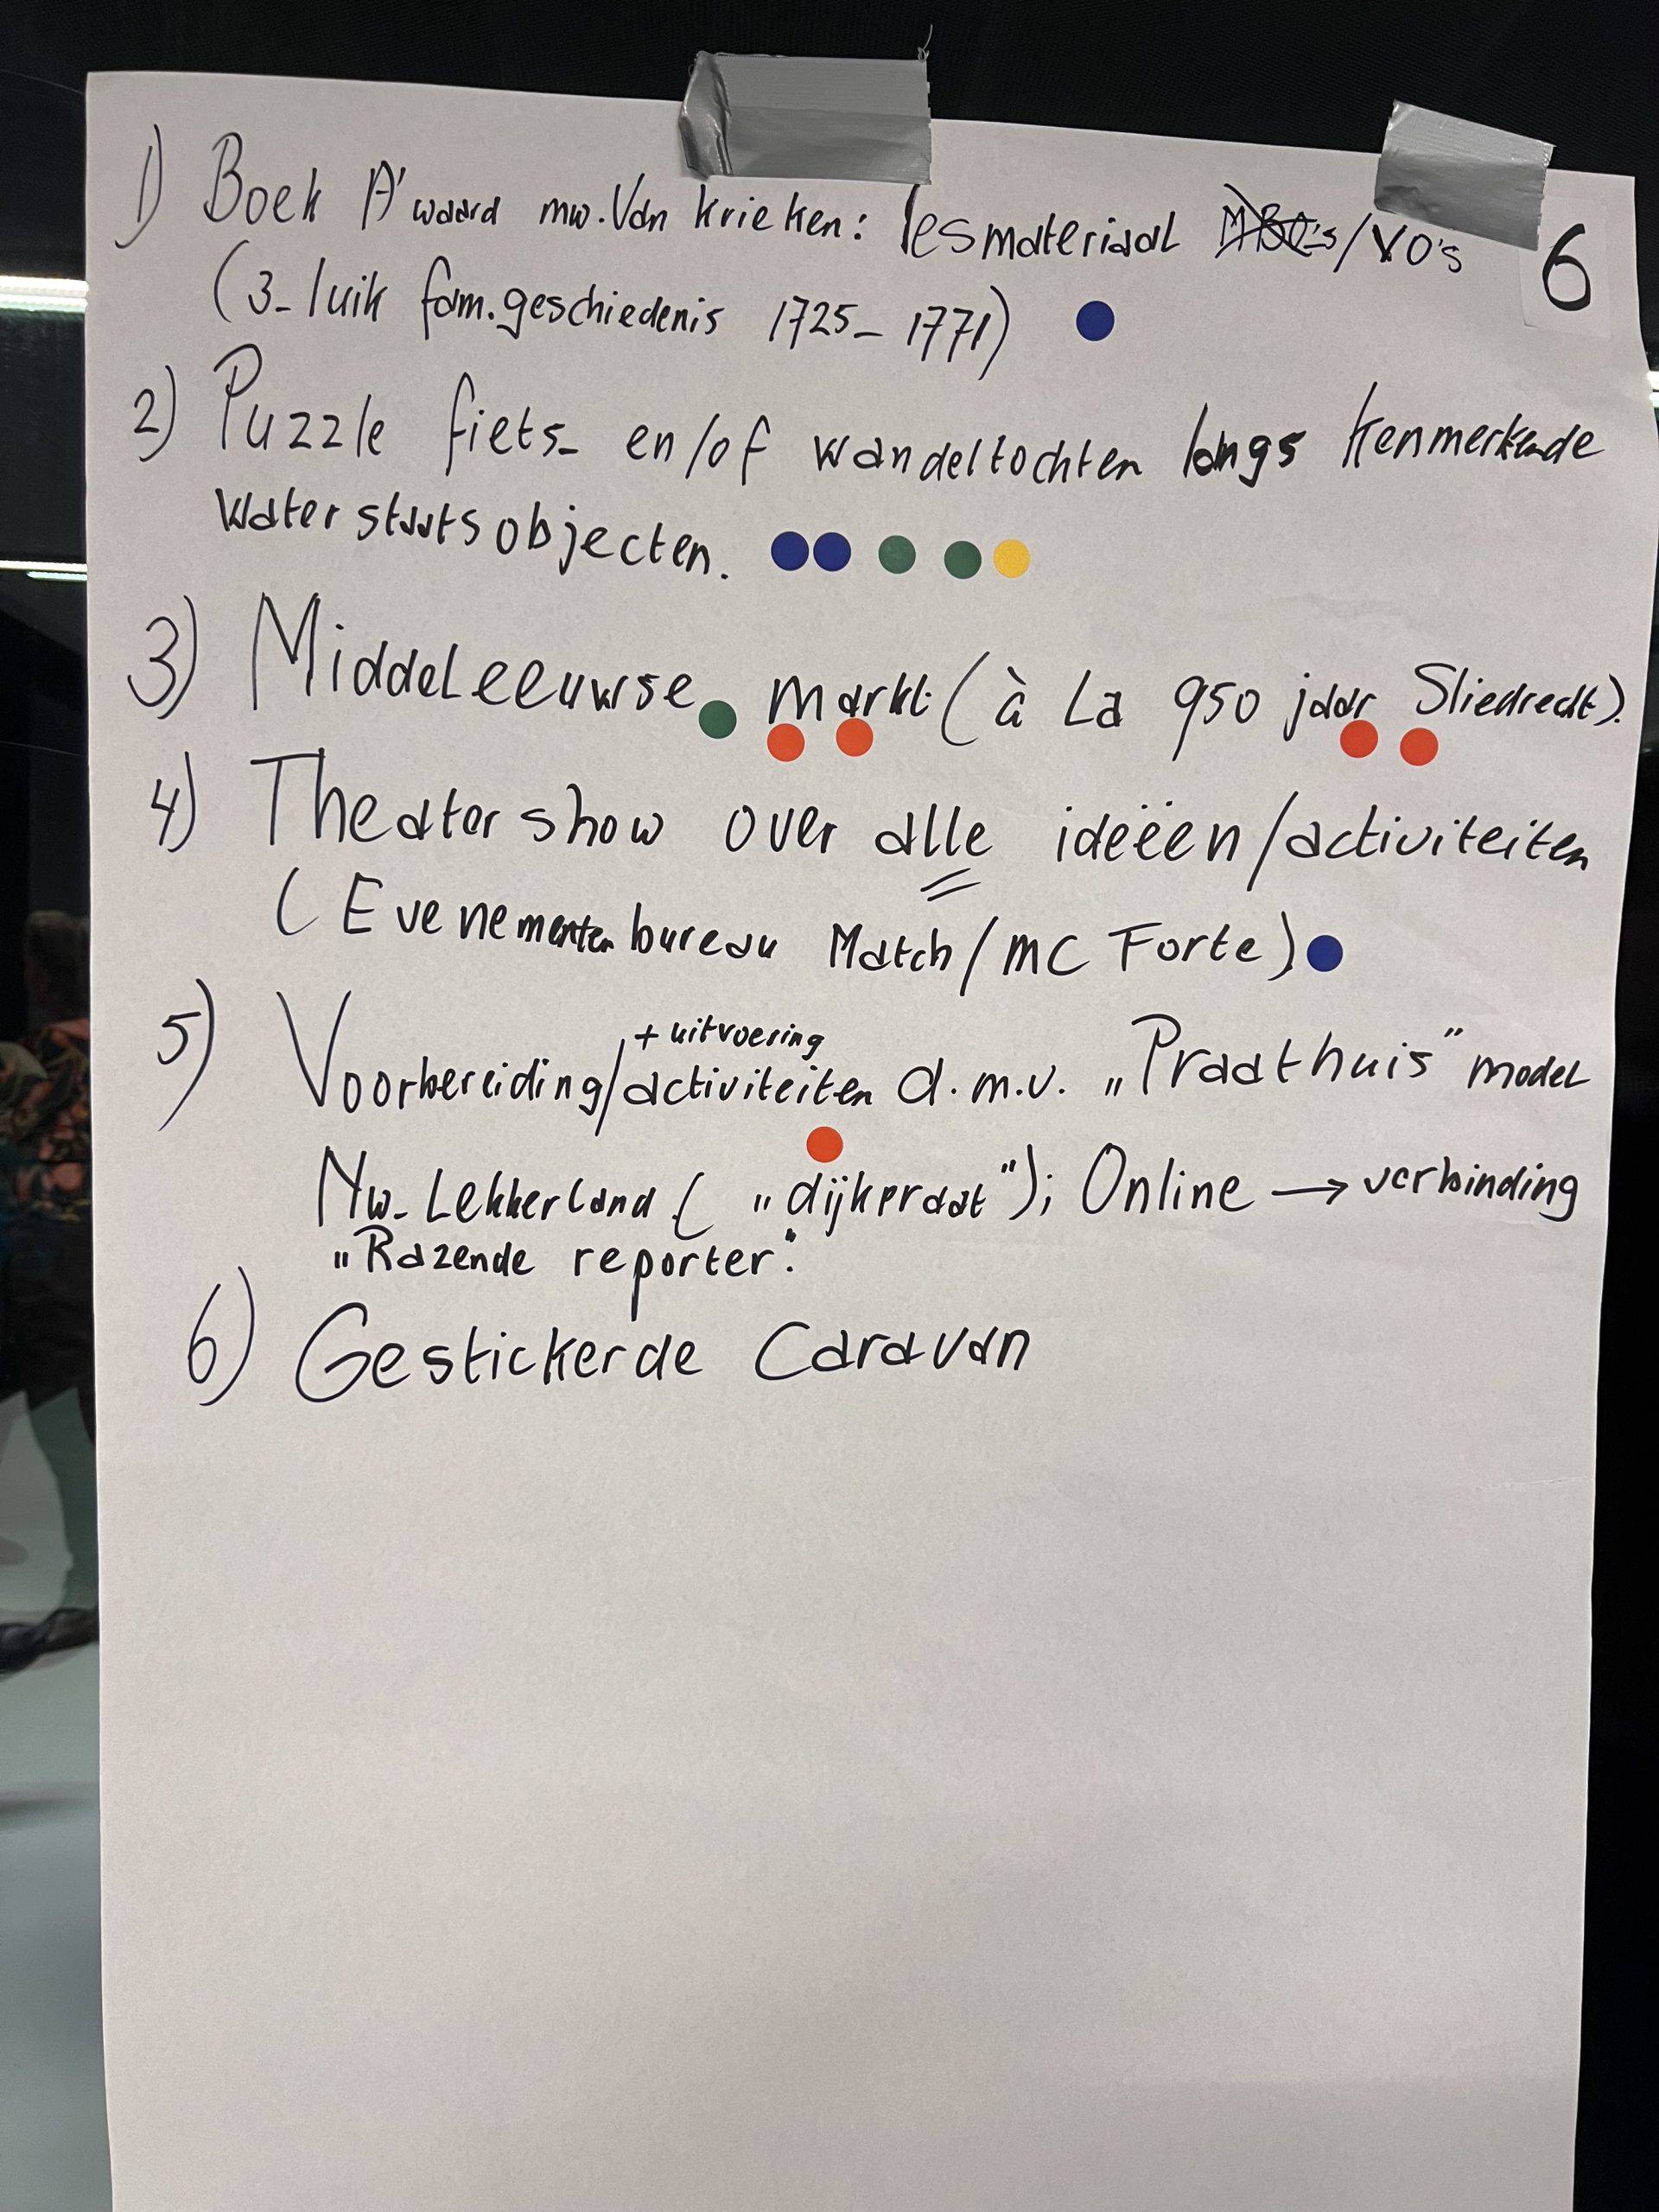 1) Boek A'waard mw. Van Krieken: lesmateriaal MBO's/VO's
6
(3-luik fam.geschiedenis 1725-1771)
2) Puzzle fiets- en/of wandeltochten langs kenmerkende
waterstaatsobjecten.
3) Middeleeuwse markt (à La 950 jaar Sliedrecht).
4) Theatershow over alle ideëen/activiteiten
(Evenementenbureau Match/MC Forte)
+ uitvoering
5) Voorbereiding/activiteiten d.m.v. „Praathuis" model
Nw-Lekkerland ( „dijkpraat"); Online → verbinding
„Razende reporter".
6) Gestickerde Caravan